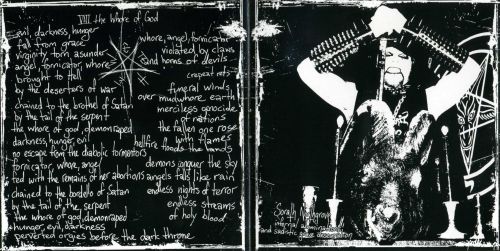 VIII The Whore of God
Evil, darkness, hunger
fall from grace
virginity torn asunder
angel, fornicator, whore
brought to Hell
by the desertors of war
chained to the brothel of Satan
by the tail of the serpent
the whore of god, demonraped
darkness, hunger, evil
no escape from the diabolic tormentors
fornicator, whore, angel
fed with the remains of her abortions
chained to the bordello of Satan
by the tail of the serpent
the whore of god, demonraped
hunger, evil, darkness
perverted orgies before the dark throne
whore, angel, fornicator
violated by claws
and horns of devils
(repeat ref)
funeral winds
over mudwhore earth
merciless genocide
of nations
the fallen one rose
with flames
hellfire floods the lands
demons conquer the sky
angels falls like rain
endless nights of terror
endless streams
of holy blood
infernal
and sadistic
desecration